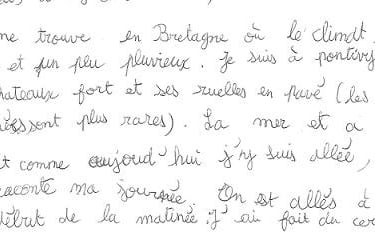 me trouve en Bretagne où le climat
et un peu pluvieux. Je suis à pontivy
hateaux fort et ses ruelles en pavé (les
sont plus rares). La mer et a
t comme aujoud'hui j'y suis allée,
raconté ma journée. On est allés à
début de la matinée. J'ai fait du cer